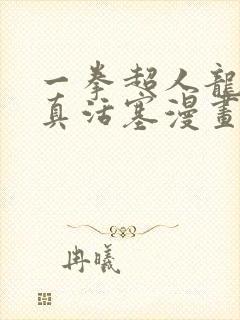 一拳超人龍
真活塞漫畫
冉曦